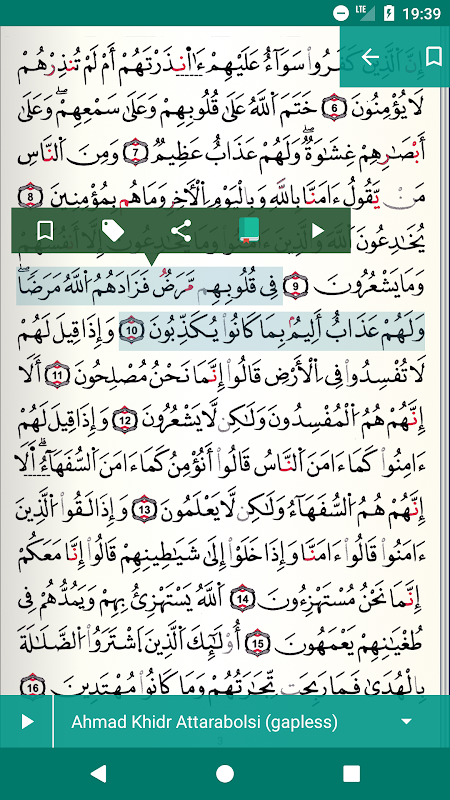 LTE 19:39
إِنَّ ٱلَّذِينَ كَفَرُواْ سَوَآءٌ عَلَيْهِمْ ءَا۬نذَرْتَهُمْ أَمْ لَمْ تُنذِرْهُمْ
لَا يُؤْمِنُونَ 6 خَتَمَ ٱللَّهُ عَلَىٰ قُلُوبِهِمْ وَعَلَىٰ سَمْعِهِمْ وَعَلَىٰ
أَبْصَٰرِهِمْ غِشَٰوَةٌ وَلَهُمْ عَذَابٌ عَظِيمٌ 7 وَمِنَ ٱلنَّاسِ
مَنْ يَّقُولُ ءَامَنَّا بِاللَّهِ وَبِالْيَوْمِ ٱلْأَخِرِ وَمَا هُم بِمُؤْمِنِينَ 8
يُخَٰدِعُونَ ٱللَّهَ وَٱلَّذِينَ ءَامَنُواْ وَمَا يُخَٰدِعُونَ إِلَّا أَنفُسَهُمْ
وَمَا يَشْعُرُونَ 9 فِي قُلُوبِهِم مَّرَضٌ فَزَادَهُمُ ٱللَّهُ مَرَضًا
وَلَهُمْ عَذَابٌ أَلِيمٌ بِمَا كَانُواْ يُكَذِّبُونَ 10 وَإِذَا قِيلَ لَهُمْ
لَا تُفْسِدُواْ فِي ٱلْأَرْضِ قَالُواْ إِنَّمَا نَحْنُ مُصْلِحُونَ 11 أَلَا
إِنَّهُمْ هُمُ ٱلْمُفْسِدُونَ وَلَٰكِن لَّا يَشْعُرُونَ 12 وَإِذَا قِيلَ لَهُمْ
ءَامِنُواْ كَمَا ءَامَنَ ٱلنَّاسُ قَالُواْ أَنُؤْمِنُ كَمَا ءَامَنَ ٱلسُّفَهَآءُ أَلَا
إِنَّهُمْ هُمُ ٱلسُّفَهَآءُ وَلَٰكِن لَّا يَعْلَمُونَ 13 وَإِذَا لَقُواْ ٱلَّذِينَ
ءَامَنُواْ قَالُواْ ءَامَنَّا وَإِذَا خَلَوْاْ إِلَىٰ شَيَٰطِينِهِمْ قَالُواْ إِنَّا مَعَكُمْ
إِنَّمَا نَحْنُ مُسْتَهْزِءُونَ 14 ٱللَّهُ يَسْتَهْزِئُ بِهِمْ وَيَمُدُّهُمْ فِي
طُغْيَٰنِهِمْ يَعْمَهُونَ 15 أُوْلَٰٓئِكَ ٱلَّذِينَ ٱشْتَرَوُاْ ٱلضَّلَٰلَةَ
بِالْهُدَىٰ فَمَا رَبِحَت تِّجَٰرَتُهُمْ وَمَا كَانُواْ مُهْتَدِينَ 16
Ahmad Khidr Attarabolsi (gapless)